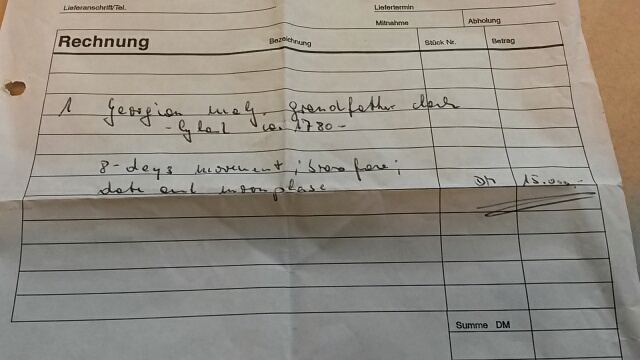 Lieferanschrift/Tel.
Liefertermin
Mitnahme
Abholung
Rechnung
Bezeichnung
Stück Nr.
Betrag
1 Georgian mahg. grandfather clock
ca. 1780 -
8-days movement; brass face;
date and moonphase DM 15.000,-
Summe DM